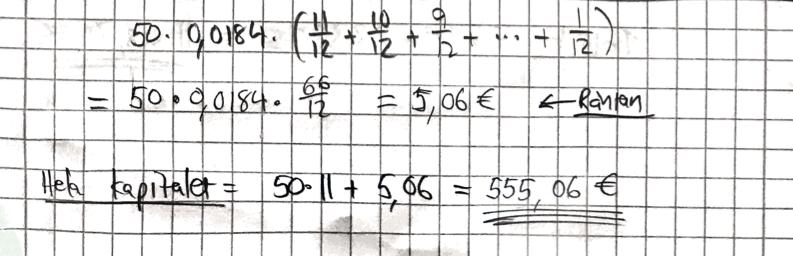 50 · 0,0184 · (11/12 + 10/12 + 9/12 + ... + 1/12)
= 50 · 0,0184 · 66/12 = 5,06 € ← Räntan
Hela kapitalet = 50·11 + 5,06 = 555,06 €